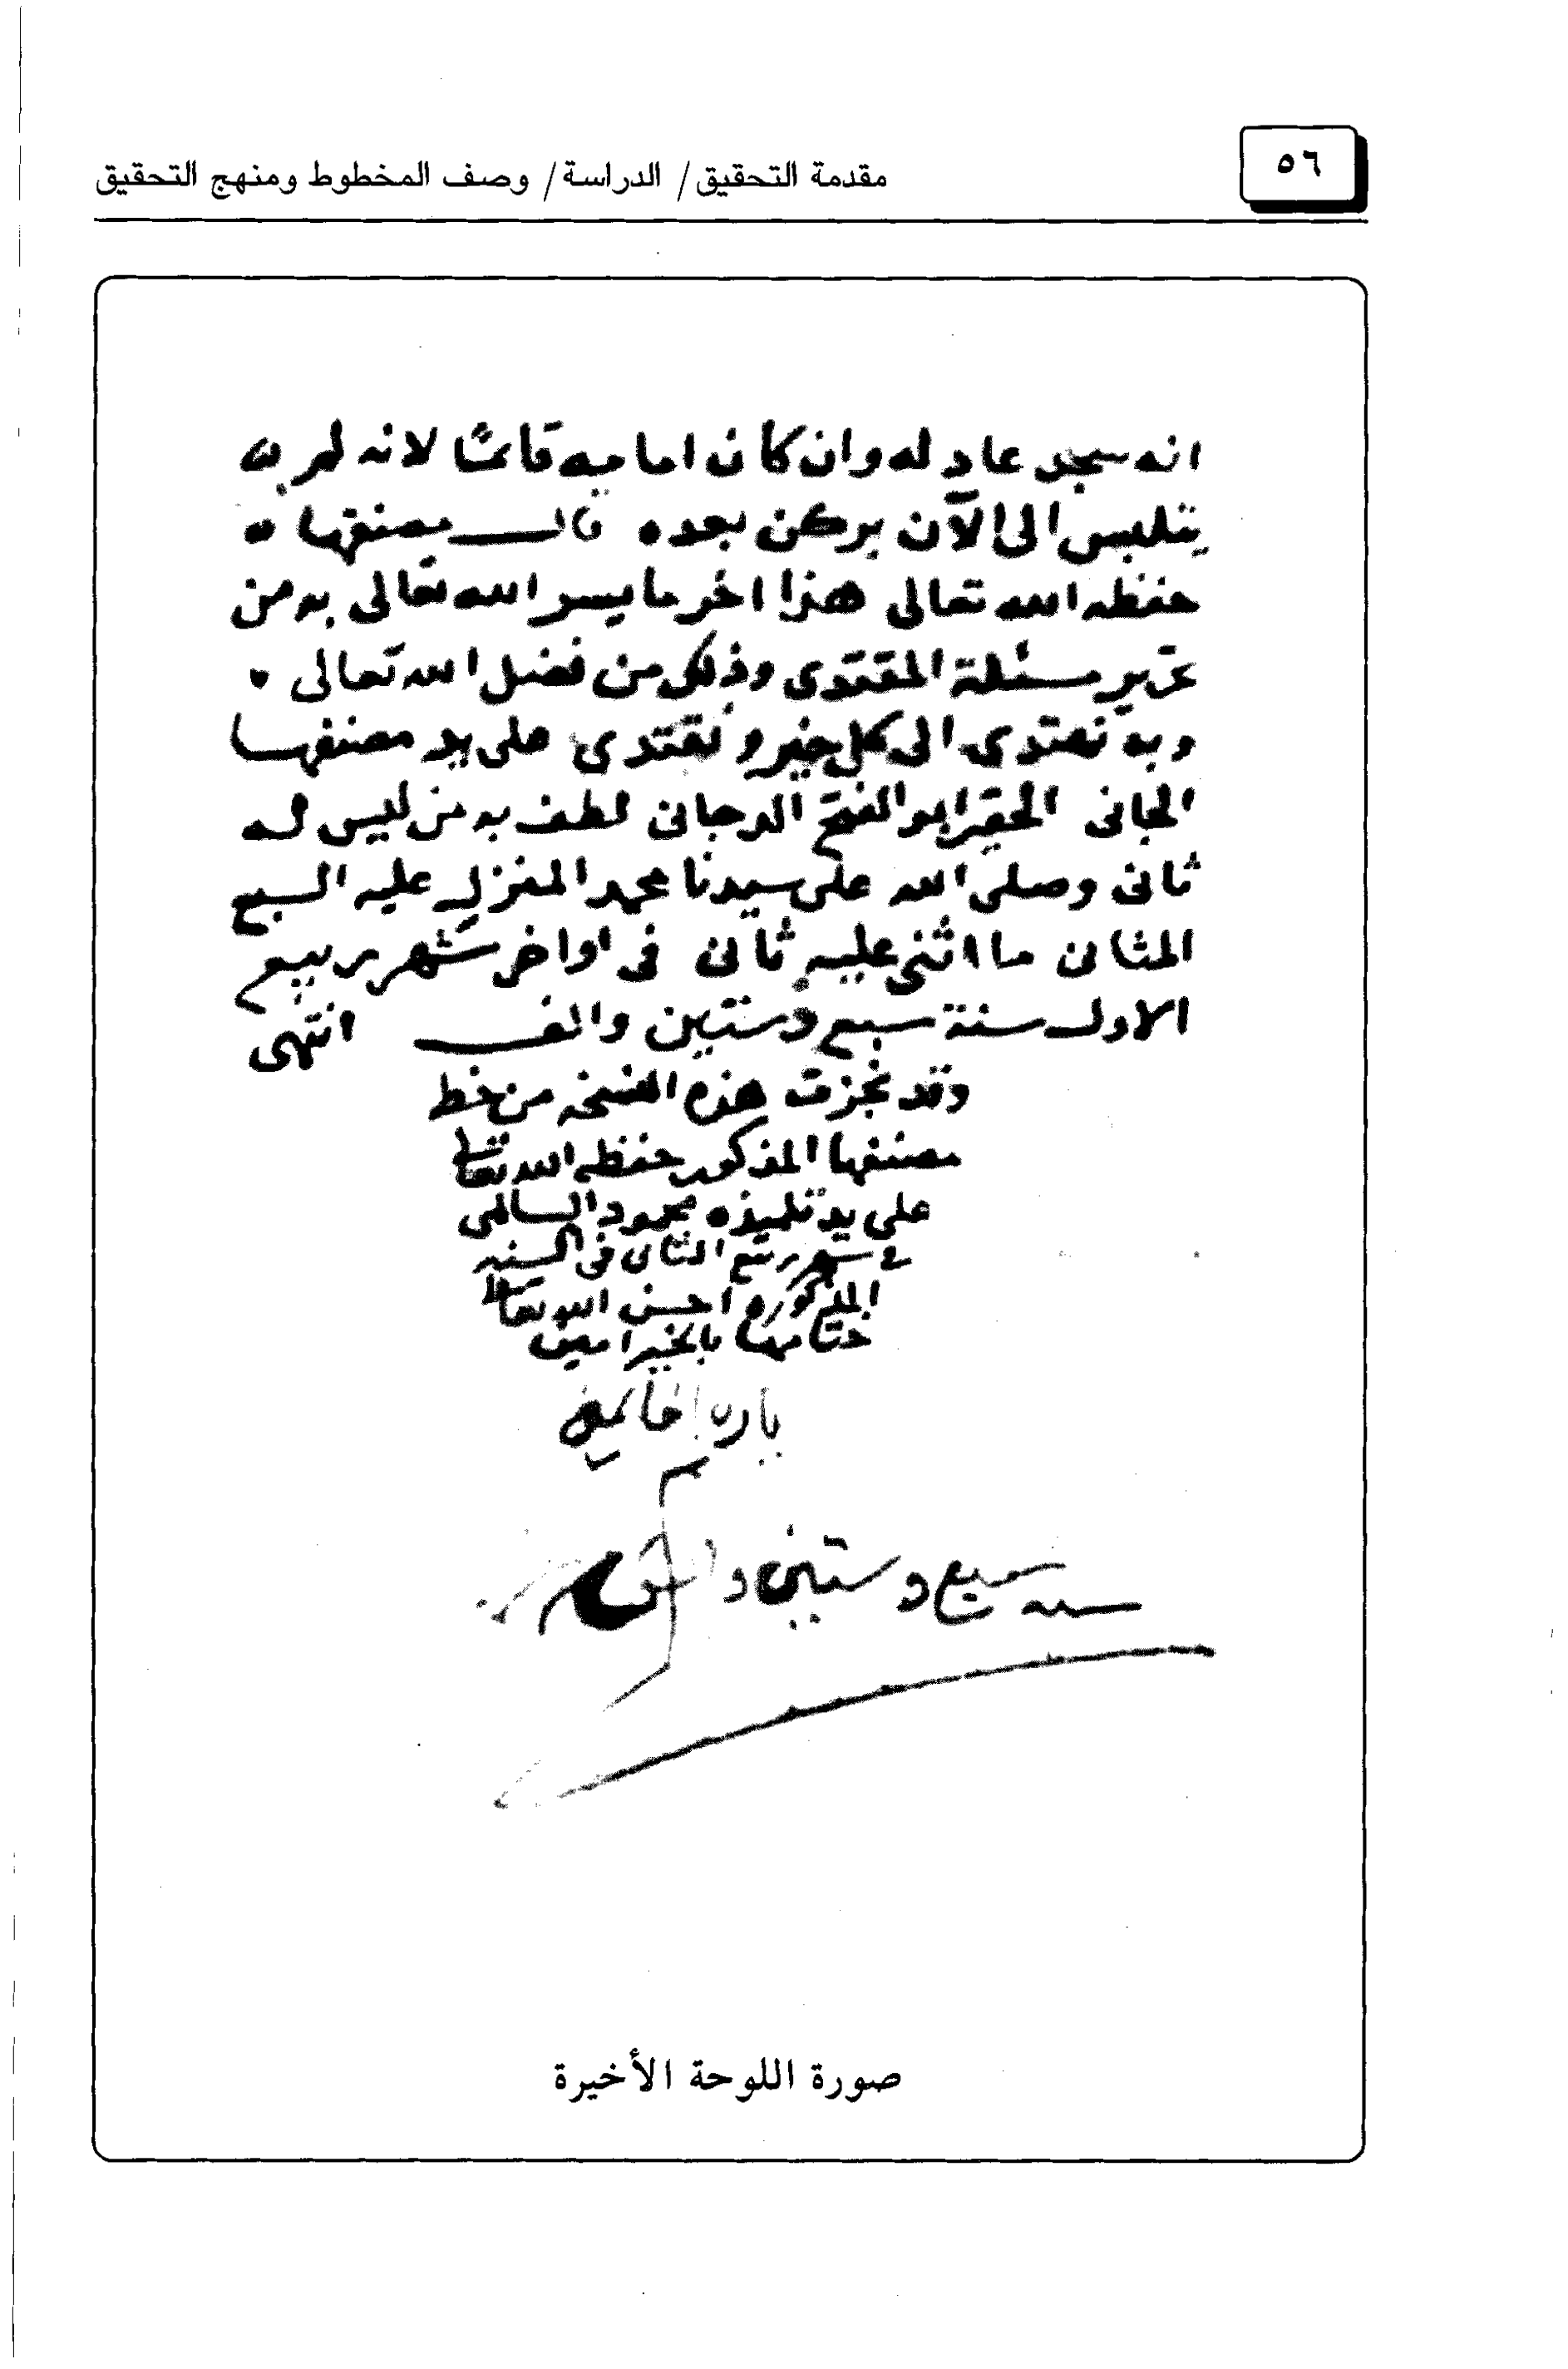 ٥٦
مقدمة التحقيق/ الدراسة/ وصف المخطوط ومنهج التحقيق
انه سجد عاد له وان كان امامه قائما لانه لم
يتلبس الى الآن بركن بعده قال مصنفها
حفظه الله تعالى هذا اخر ما يسر الله تعالى به من
تحرير مسئلة المقتدى وذلك من فضل الله تعالى
وبه نهتدى الى كل خير ونقتدى على يد مصنفها
الجانى الحقير ابو الفتح الدجانى لطف به من ليس له
ثانى وصلى الله على سيدنا محمد المنزل عليه السبع
المثانى ما اثنى عليه ثانى فى اواخر شهر ربيع
الاول سنة سبع وستين والف انتهى
وقد نجزت هذه النسخه من خط
مصنفها المذكور حفظه الله تعالى
على يد تلميذه محمود السالمى
فى شهر ربيع الثانى فى السنه
المذكوره احسن الله تعالى
ختامها بالخير امين
يارب
سنه سبع وستين والف
صورة اللوحة الأخيرة